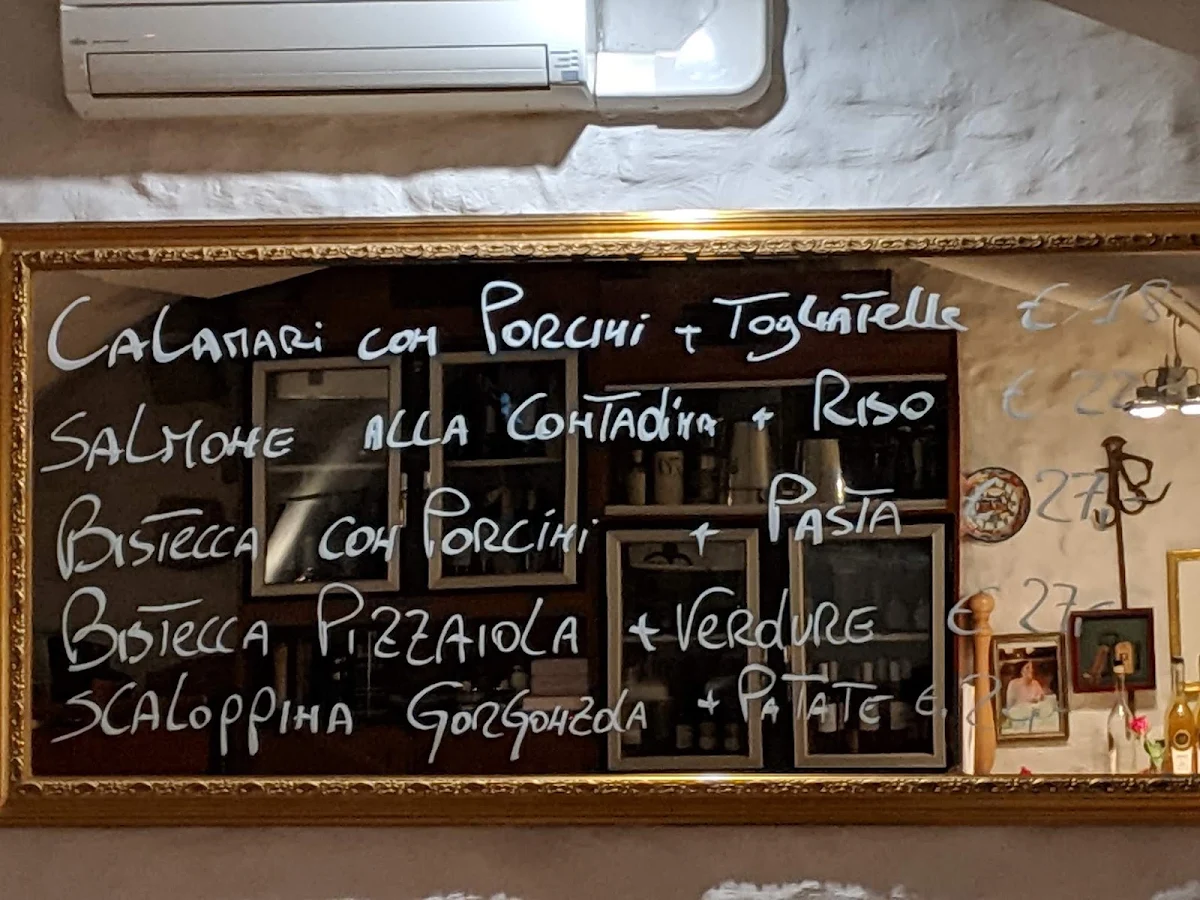 CALAMARI CON PORCINI + TOGLIATELLE € 18
SALMONE ALLA CONTADINA + RISO € 22,-
BISTECCA CON PORCINI + PASTA € 27,-
BISTECCA PIZZAIOLA + VERDURE € 27,-
SCALOPPINA GORGONZOLA + PATATE €